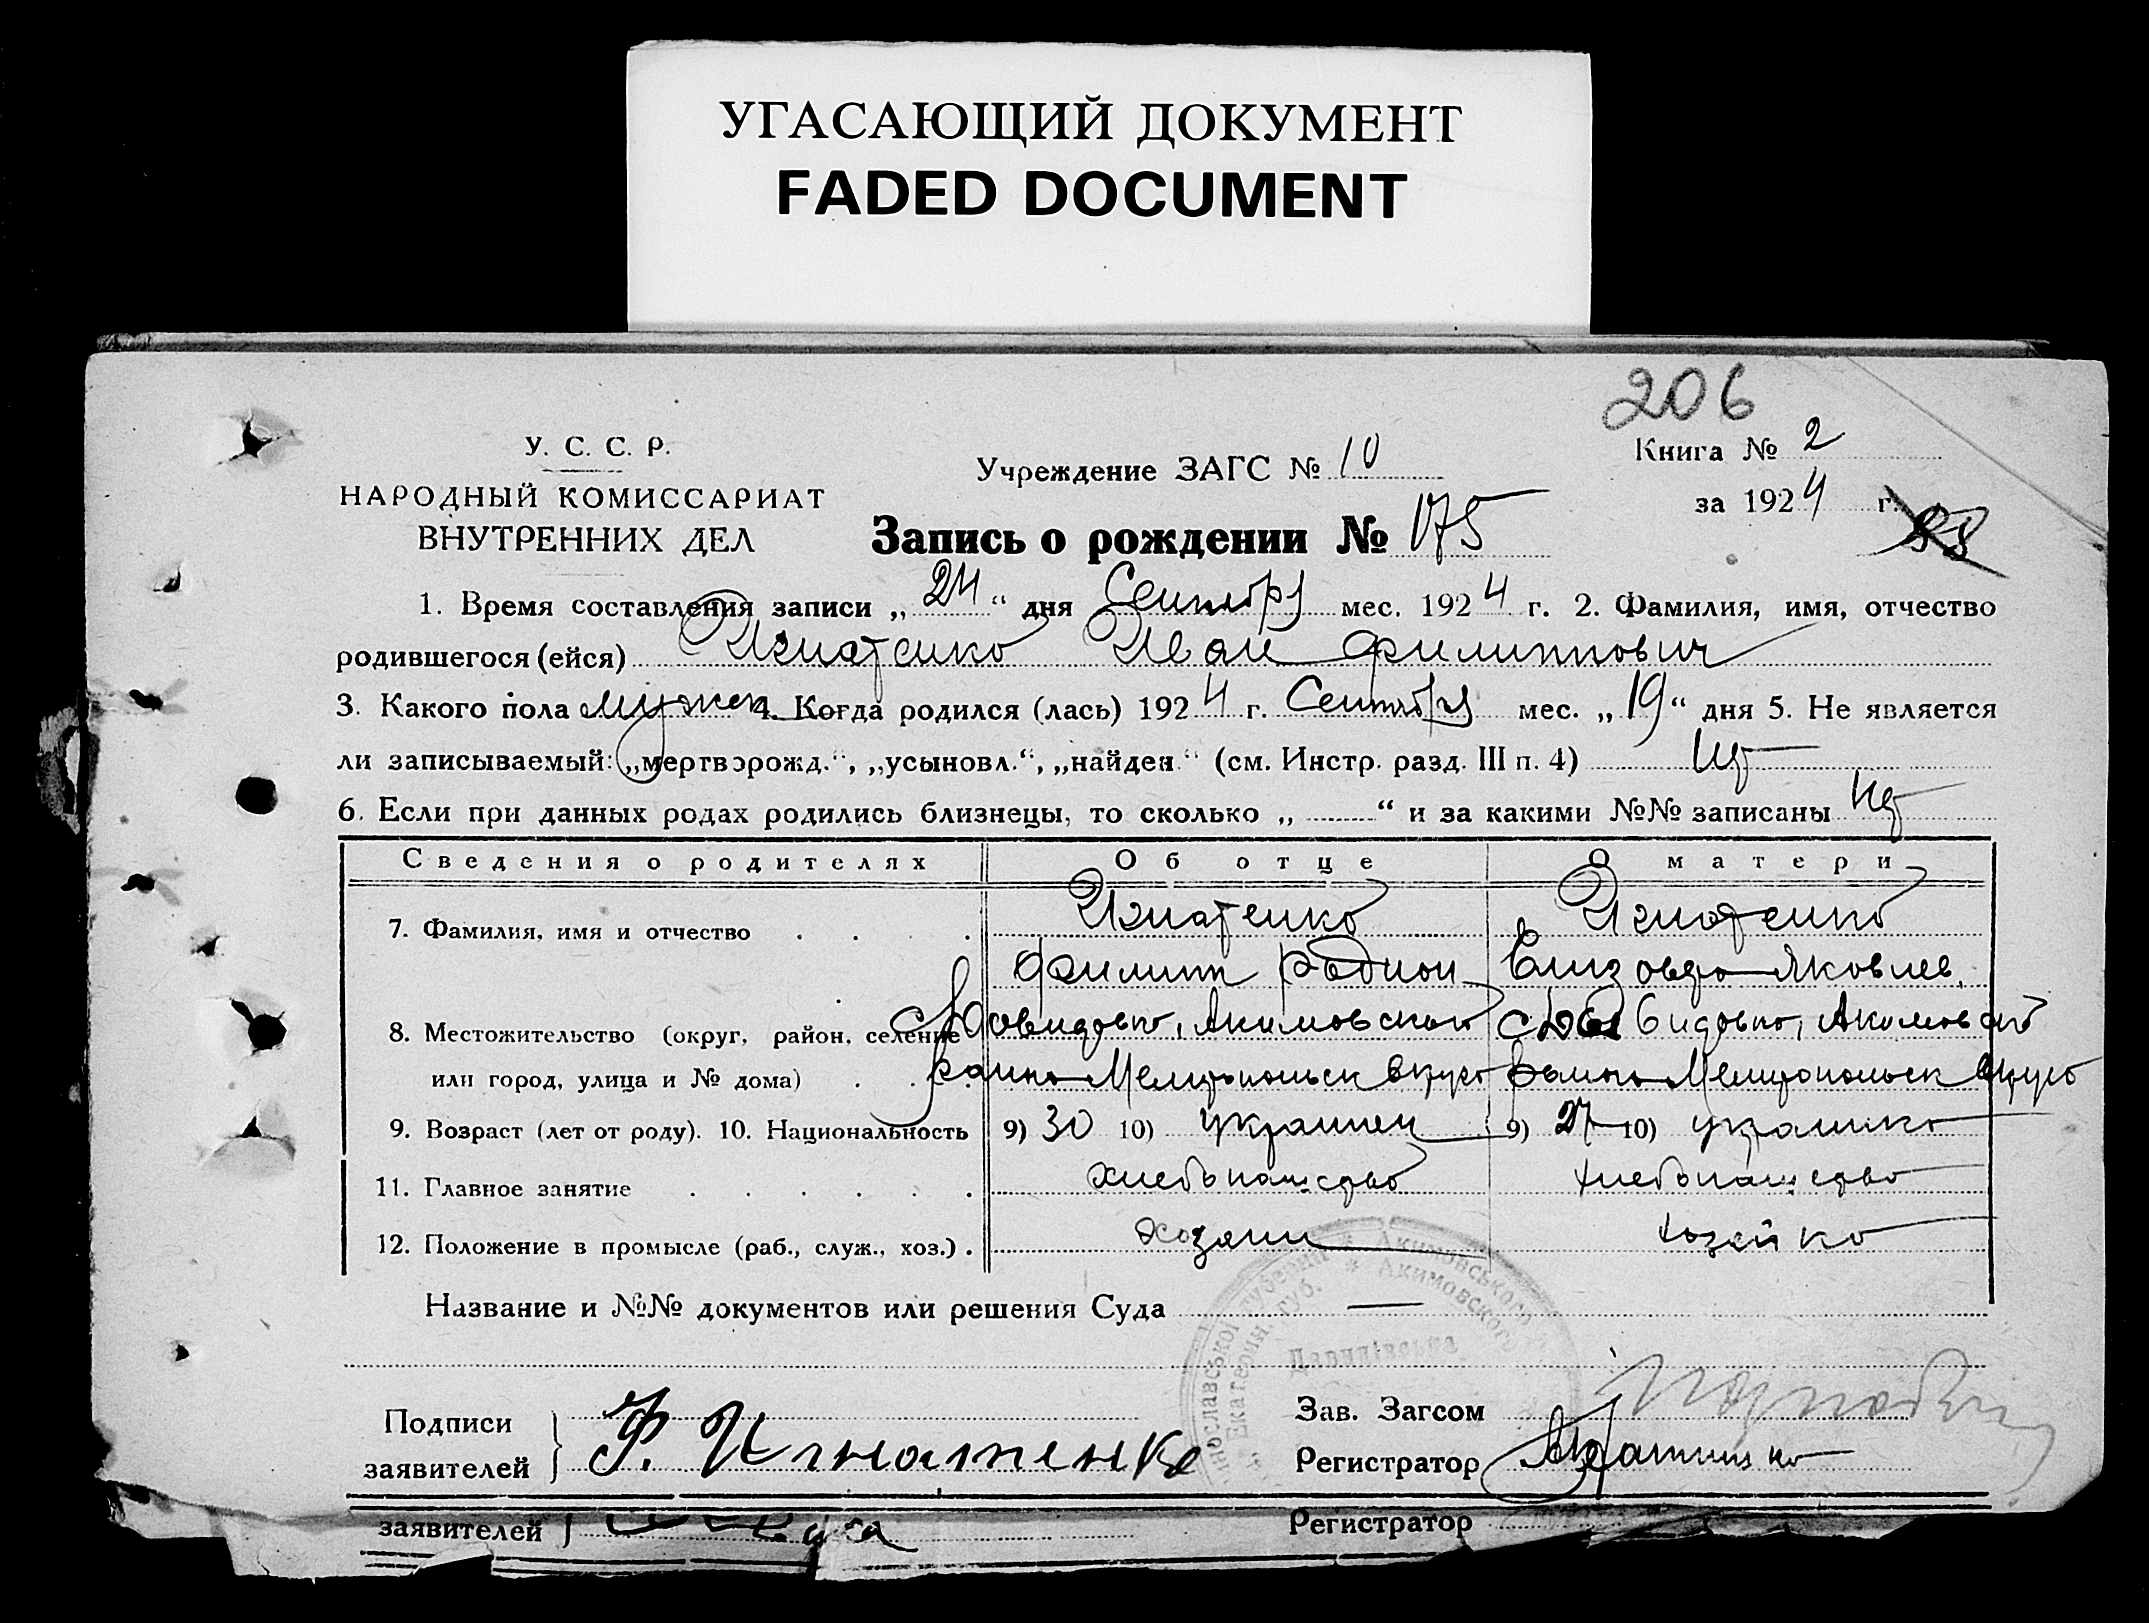 УГАСАЮЩИЙ ДОКУМЕНТ
FADED DOCUMENT
206
У. С. С. Р.
НАРОДНЫЙ КОМИССАРИАТ
ВНУТРЕННИХ ДЕЛ
Учреждение ЗАГС № 10
Книга № 2
за 1924 г.
Запись о рождении № 175
88
1. Время составления записи „24“ дня Сентября мес. 1924 г. 2. Фамилия, имя, отчество
родившегося (ейся) Игнатенко Иван Филиппович
3. Какого пола мужск 4. Когда родился (лась) 1924 г. Сентября мес. „19“ дня 5. Не является
ли записываемый: „мертворожд.“, „усыновл.“, „найден“ (см. Инстр. разд. III п. 4) нет
6. Если при данных родах родились близнецы, то сколько „ “ и за какими №№ записаны нет
Сведения о родителях Об отце О матери
7. Фамилия, имя и отчество Игнатенко Игнатенко
Филипп Родион Елизавета Яковлев.
8. Местожительство (округ, район, селение с. Давидовка, Акимовского с. Давидовка, Акимовского
или город, улица и № дома) района Мелитопольск округа района Мелитопольск округа
9. Возраст (лет от роду). 10. Национальность 9) 30 10) украинец 9) 27 10) украинка
11. Главное занятие хлебопашество хлебопашество
12. Положение в промысле (раб., служ., хоз.) хозяин хозяйка
Название и №№ документов или решения Суда —
Екатерин. губ. * Акимовского
Подписи
заявителей } Ф. Игнатенко
Зав. Загсом
Регистратор
заявителей }
Регистратор